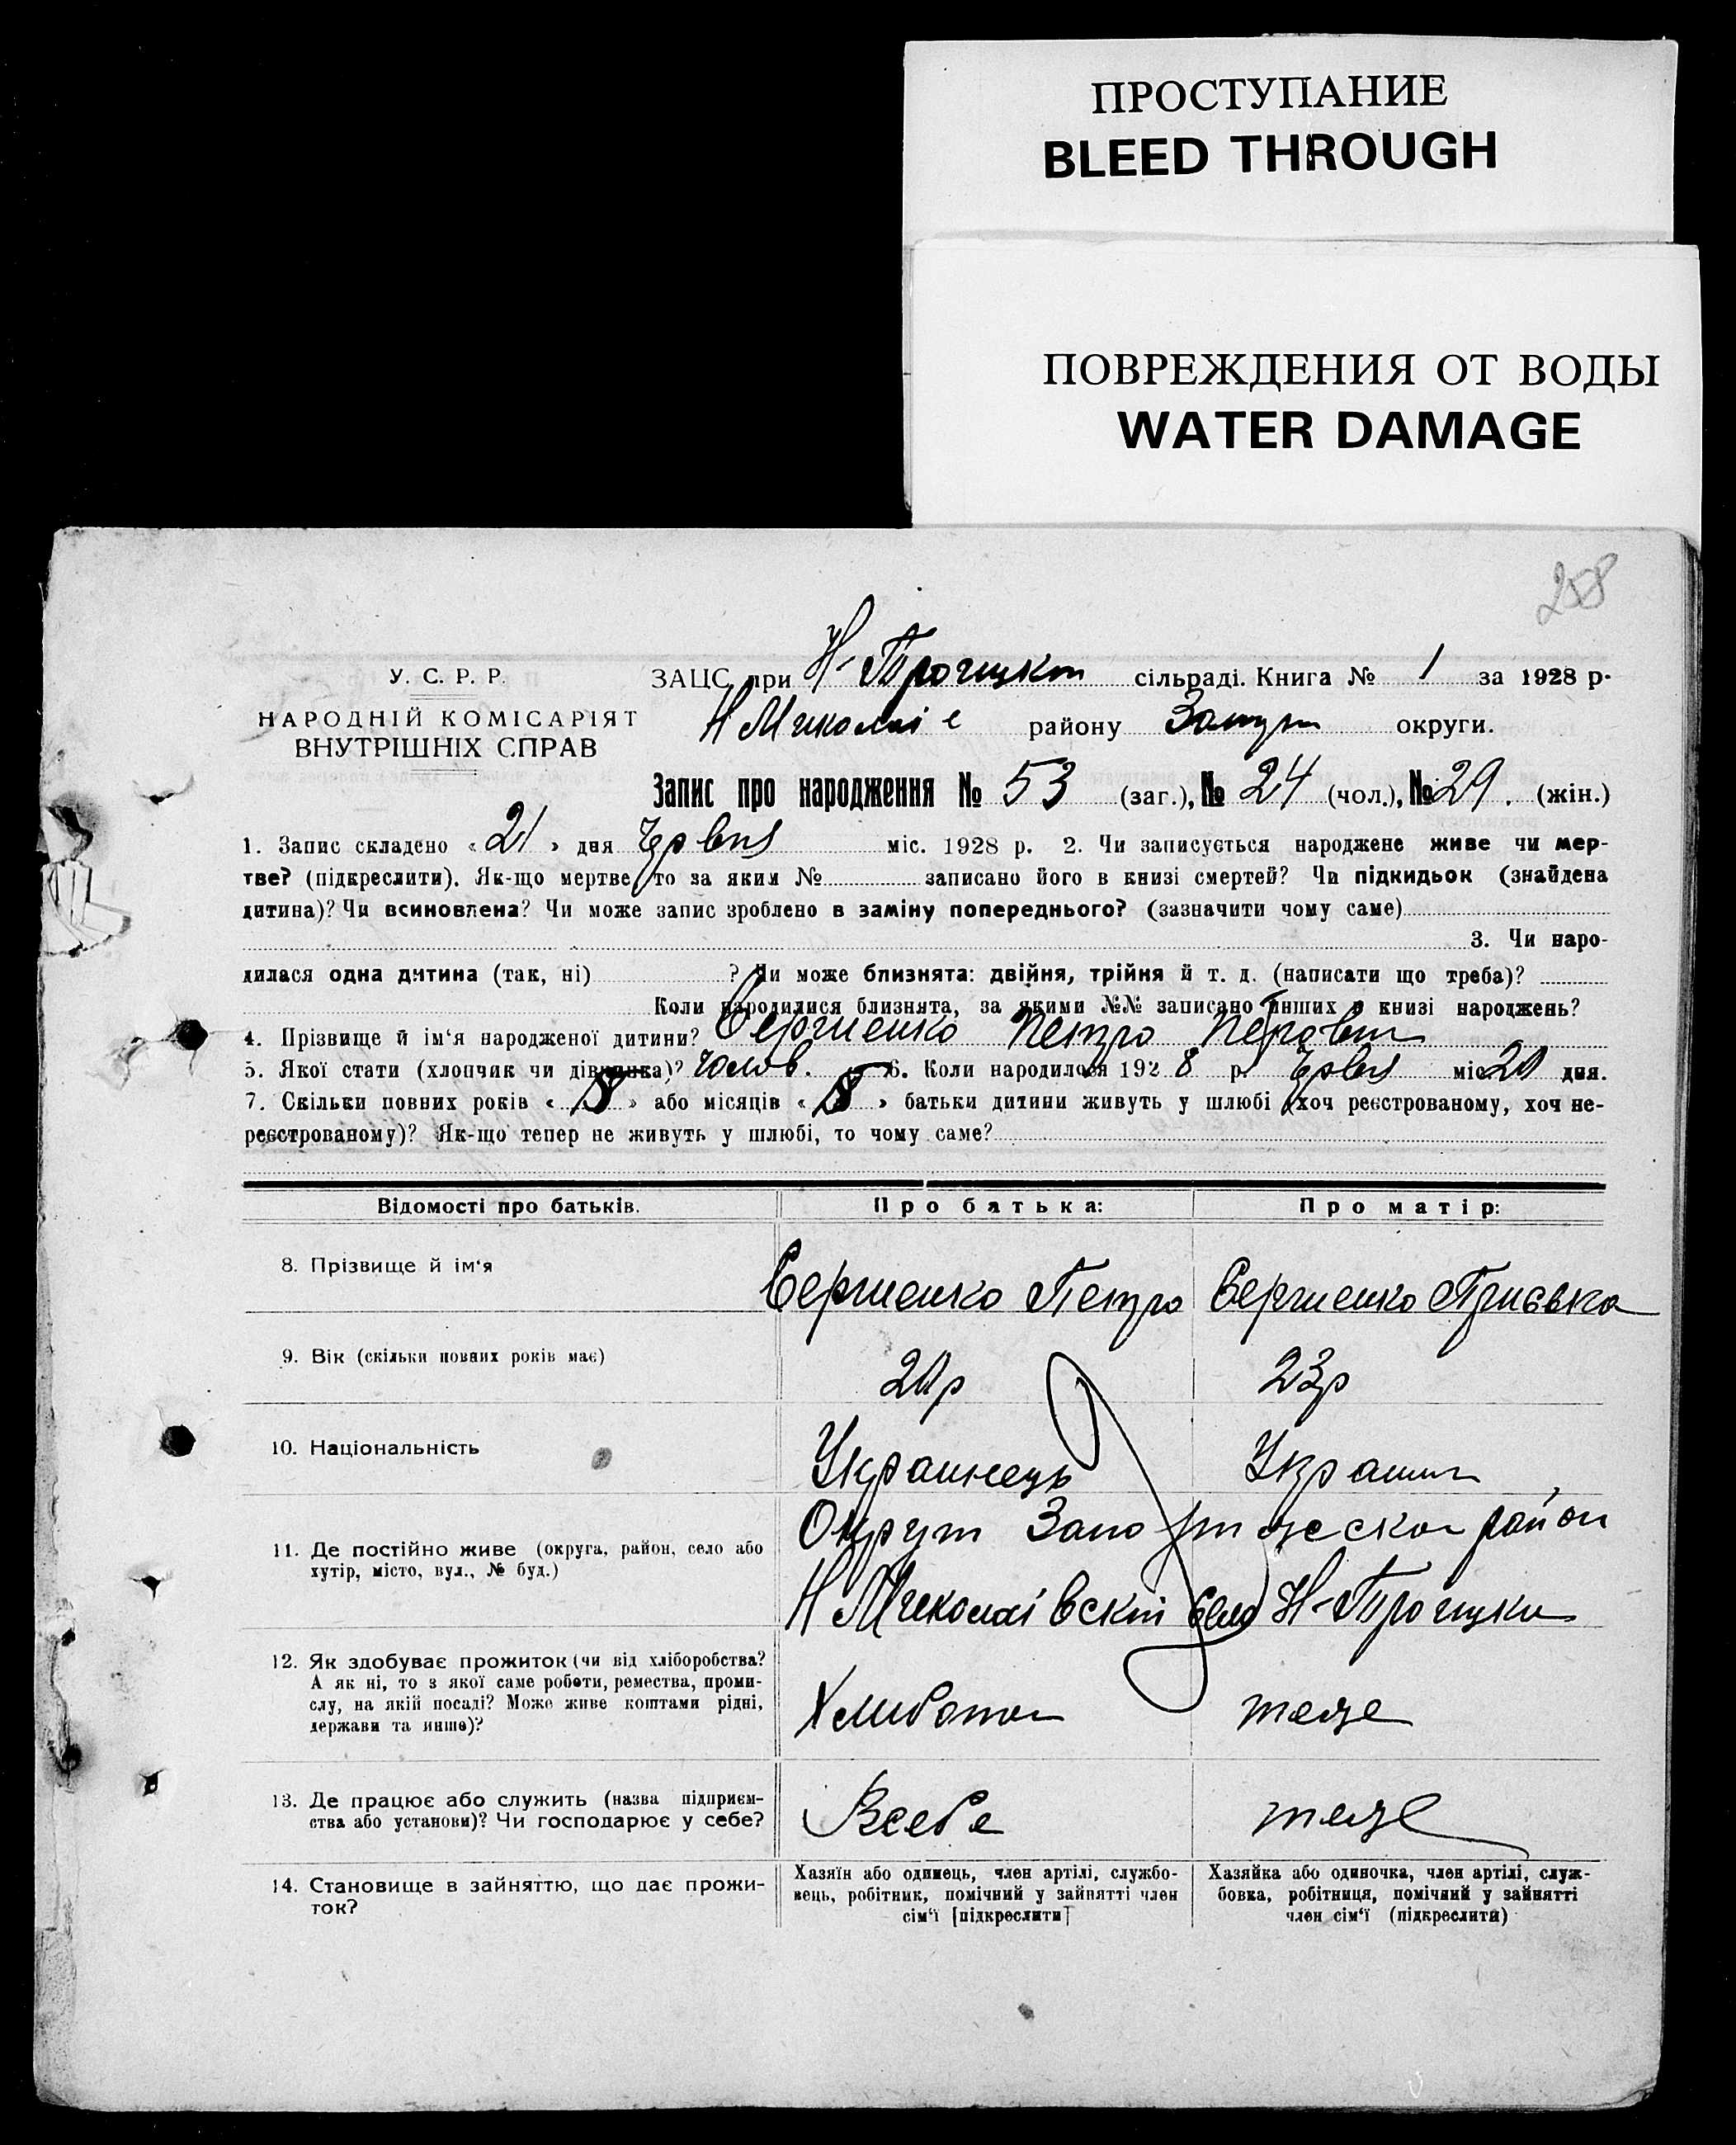 ПРОСТУПАНИЕ
BLEED THROUGH
ПОВРЕЖДЕНИЯ ОТ ВОДЫ
WATER DAMAGE
258
У. С. Р. Р.
НАРОДНІЙ КОМІСАРІЯТ
ВНУТРІШНІХ СПРАВ
ЗАЦС при Н-Троицкій сільраді. Книга № 1 за 1928 р.
Н Миколаів району округи.
Запис про народження № 53 (заг.), № 24 (чол.), № 29. (жін.)
1. Запис складено « 21 » дня Червня міс. 1928 р. 2. Чи записується народжене живе чи мер-
тве? (підкреслити). Як-що мертве то за яким № записано його в книзі смертей? Чи підкидьок (знайдена
дитина)? Чи всиновлена? Чи може запис зроблено в заміну попереднього? (зазначити чому саме)
3. Чи наро-
дилася одна дитина (так, ні) ? Чи може близнята: двійня, трійня й т. д. (написати що треба)?
Коли народилися близнята, за якими №№ записано инших в книзі народжень?
4. Прізвище й ім'я народженої дитини? Сергиенко Петро
5. Якої стати (хлопчик чи дівчинка)? Чолов. 6. Коли народилося 1928 р. Червня міс 20 дня.
7. Скільки повних років « » або місяців « » батьки дитини живуть у шлюбі (хоч реєстрованому, хоч не-
реєстрованому)? Як-що тепер не живуть у шлюбі, то чому саме?
Відомості про батьків.
Про батька:
Про матір:
8. Прізвище й ім'я
Сергиенко Петро
Сергиенко
9. Вік (скільки повних років має)
20р
23р
10. Національність
Украинець
Украин
11. Де постійно живе (округа, район, село або
хутір, місто, вул., № буд.)
Округи район
Н Миколаівскій село Н-Троицки
12. Як здобуває прожиток (чи від хліборобства?
А як ні, то з якої саме роботи, ремества, проми-
слу, на якій посаді? Може живе коштами рідні,
держави та инше)?
теже
13. Де працює або служить (назва підприєм-
ства або установи)? Чи господарює у себе?
Всебе
теже
14. Становище в зайняттю, що дає прожи-
ток?
Хазяїн або одинець, член артілі, службо-
вець, робітник, помічний у зайнятті член
сім'ї [підкреслити]
Хазяйка або одиночка, член артілі, служ-
бовка, робітниця, помічний у зайнятті
член сім'ї (підкреслити)